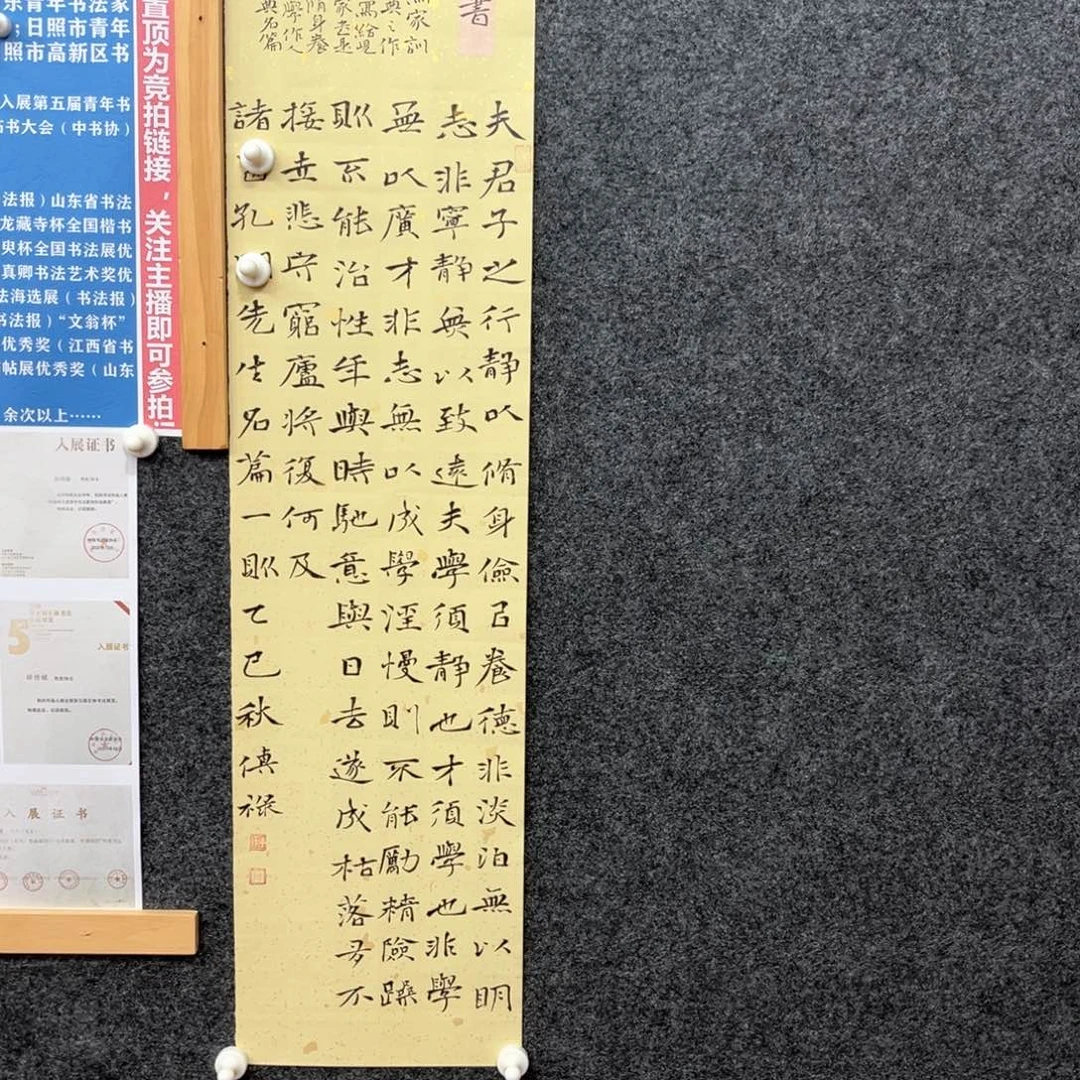 夫君子之行静以脩身儉以養德非淡泊無以明
志非寧静無以致遠夫學須静也才須學也非學
無以廣才非志無以成學淫慢則不能勵精險躁
則不能治性年與時馳意與日去遂成枯落多不
接世悲守窮廬將復何及
諸孔先生名篇一則乙巳秋傅禄
書
家訓
之作
身養
學作人
典名篇
置顶为竞拍链接，关注主播即可参拍
东青年书法家
；日照市青年
照市高新区书
入展第五届青年书
书大会（中书协）
法报）山东省书法
龙藏寺杯全国楷书
杯全国书法展优
真卿书法艺术奖优
法海选展（书法报）
书法报）“文翁杯”
优秀奖（江西省书
帖展优秀奖（山东
余次以上……
入展证书
5
入展证书
入展证书